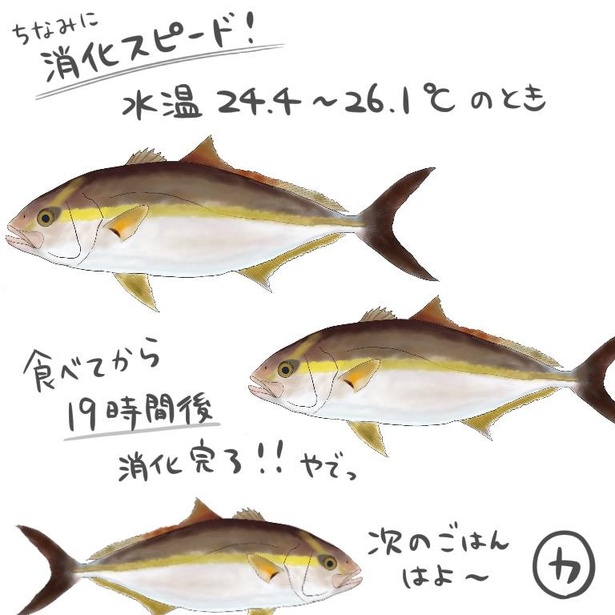 ちなみに
消化スピード!
水温 24.4～26.1℃ のとき
食べてから
19時間後
消化完了!! やでっ
次のごはん
はよ～
カ